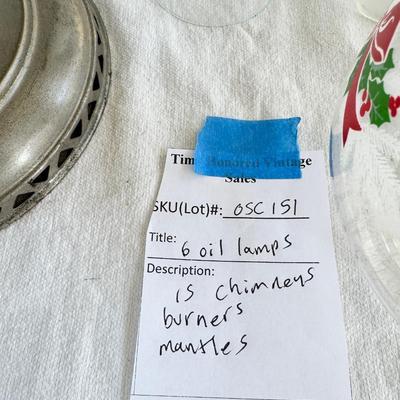 Time Honored Vintage
Sales
SKU(Lot)#: OSC 151
Title: 6 oil lamps
Description:
15 chimneys
burners
mantles